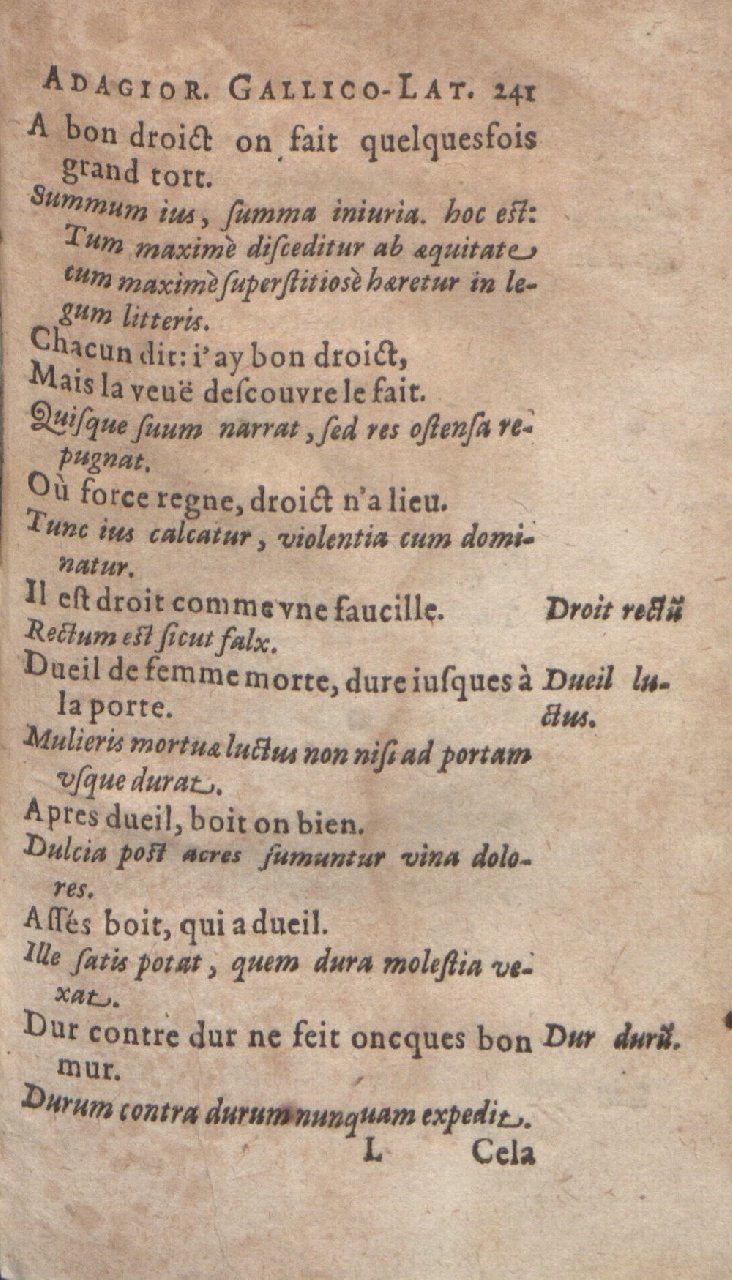 ADAGIOR. GALLICO-LAT. 241
A bon droict on fait quelquesfois
grand tort.
Summum ius, ſumma iniuria. hoc eſt:
Tum maximè diſceditur ab æquitate
cum maximè ſuperſtitiosè hæretur in le-
gum litteris.
Chacun dit: i'ay bon droict,
Mais la veuë deſcouvre le fait.
Quiſque ſuum narrat, ſed res oſtenſa re-
pugnat.
Où force regne, droict n'a lieu.
Tunc ius calcatur, violentia cum domi-
natur.
Il eſt droit comme vne faucille. Droit rectũ
Rectum eſt ſicut falx.
Dueil de femme morte, dure iuſques à Dueil lu-
la porte. ctus.
Mulieris mortuæ luctus non niſi ad portam
vſque durat.
Apres dueil, boit on bien.
Dulcia poſt acres ſumuntur vina dolo-
res.
Aſſés boit, qui a dueil.
Ille ſatis potat, quem dura moleſtia ve-
xat.
Dur contre dur ne feit oncques bon Dur durũ.
mur.
Durum contra durum nunquam expedit.
L Cela